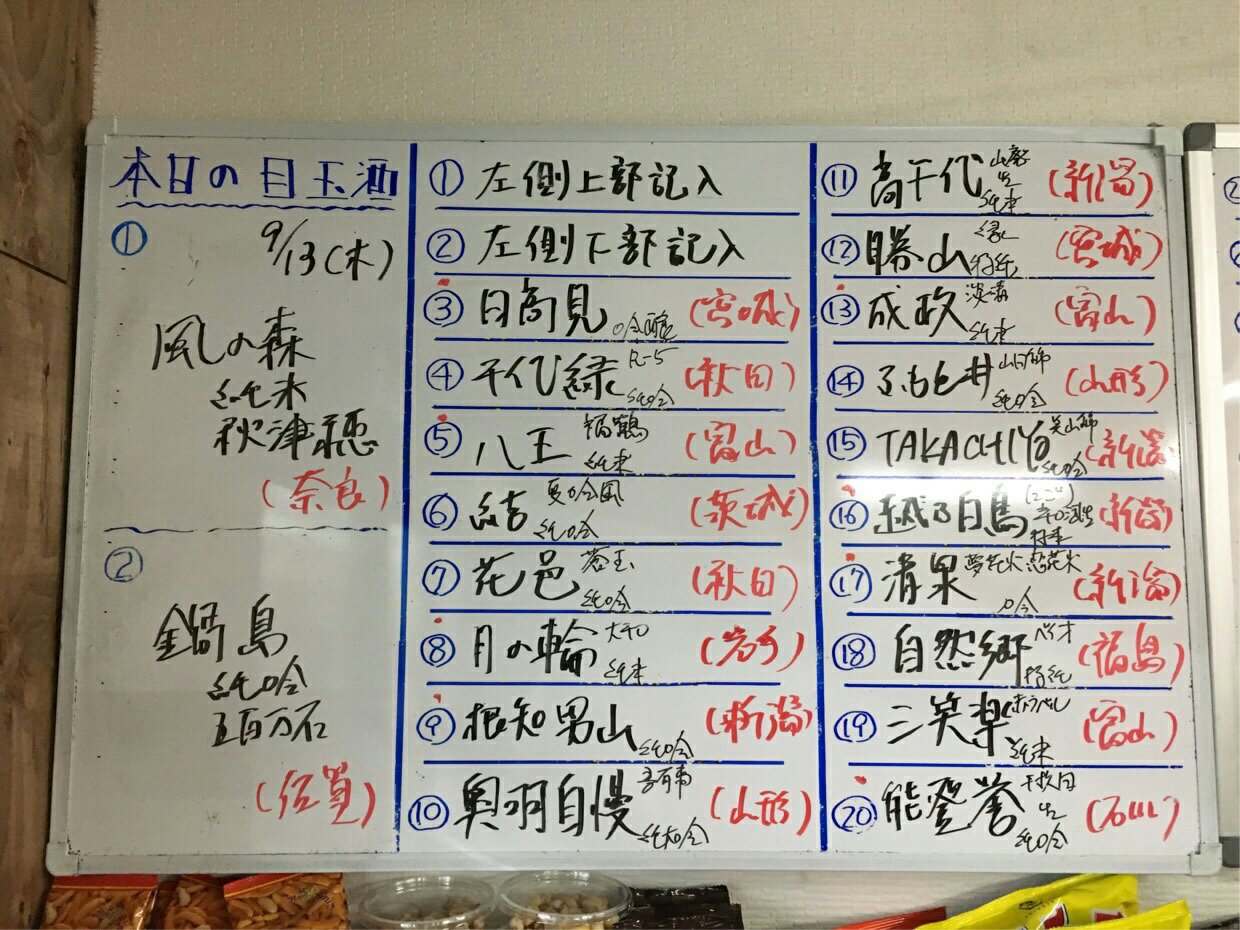 本日の目玉酒
①
9/13(木)
風の森
純米
秋津穂
(奈良)
②
鍋島
純吟
五百万石
(佐賀)
① 左側上部記入
② 左側下部記入
③ 日高見 吟醸 (宮城)
④ 千代緑 R-5 純吟 (秋田)
⑤ 八王 福鶴 純米 (富山)
⑥ 結 夏吟風 純吟 (茨城)
⑦ 花邑 蒼玉 純吟 (秋田)
⑧ 月の輪 大和 純米 (岩手)
⑨ 根知男山 純吟 (新潟)
⑩ 奥羽自慢 吾有事 純大吟 (山形)
⑪ 高千代 山廃 生 純米 (新潟)
⑫ 勝山 縁 特純 (宮城)
⑬ 成政 淡溝 純米 (富山)
⑭ ふもと井 山田錦 純吟 (山形)
⑮ TAKACHIYO 美山錦 純吟 (新潟)
⑯ 越乃白鳥 特本 (新潟)
⑰ 清泉 夢花火 恋花火 吟 (新潟)
⑱ 自然郷 特純 (福島)
⑲ 三笑楽 純米 (富山)
⑳ 能登誉 生 純吟 (石川)